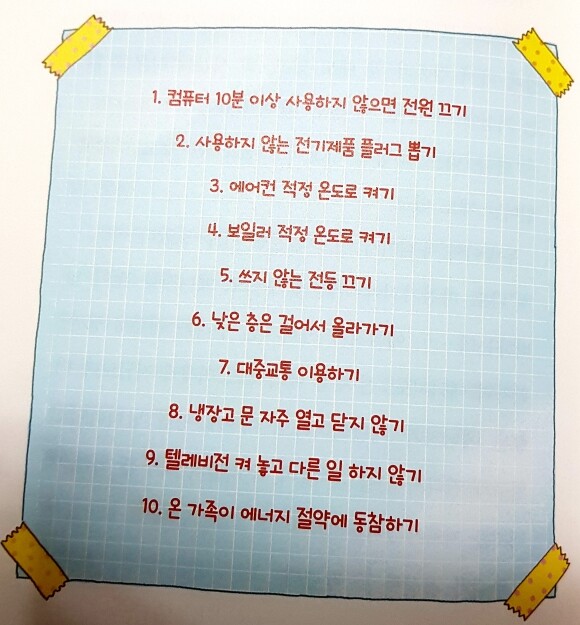 1. 컴퓨터 10분 이상 사용하지 않으면 전원 끄기
2. 사용하지 않는 전기제품 플러그 뽑기
3. 에어컨 적정 온도로 켜기
4. 보일러 적정 온도로 켜기
5. 쓰지 않는 전등 끄기
6. 낮은 층은 걸어서 올라가기
7. 대중교통 이용하기
8. 냉장고 문 자주 열고 닫지 않기
9. 텔레비전 켜 놓고 다른 일 하지 않기
10. 온 가족이 에너지 절약에 동참하기